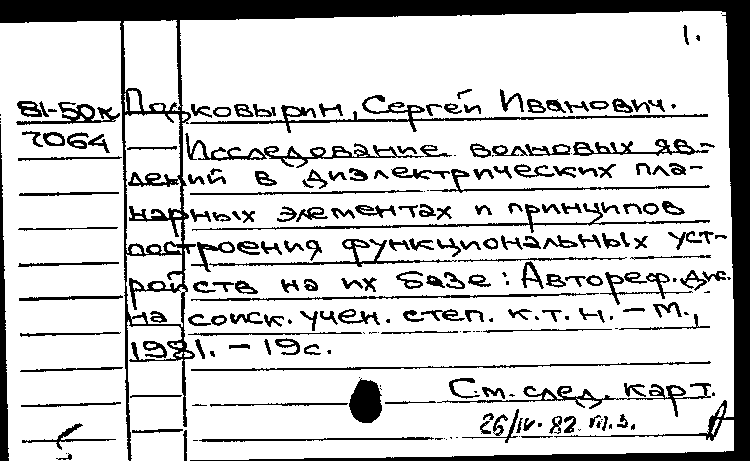 1.
81-50к Подковырин, Сергей Иванович.
7064 Исследование волновых яв-
лений в диэлектрических пла-
нарных элементах и принципов
построения функциональных уст-
ройств на их базе: Автореф. дис.
на соиск. учен. степ. к.т.н. – М.,
1981. – 19с.
См. след. карт.
26/IV-82 т.з.